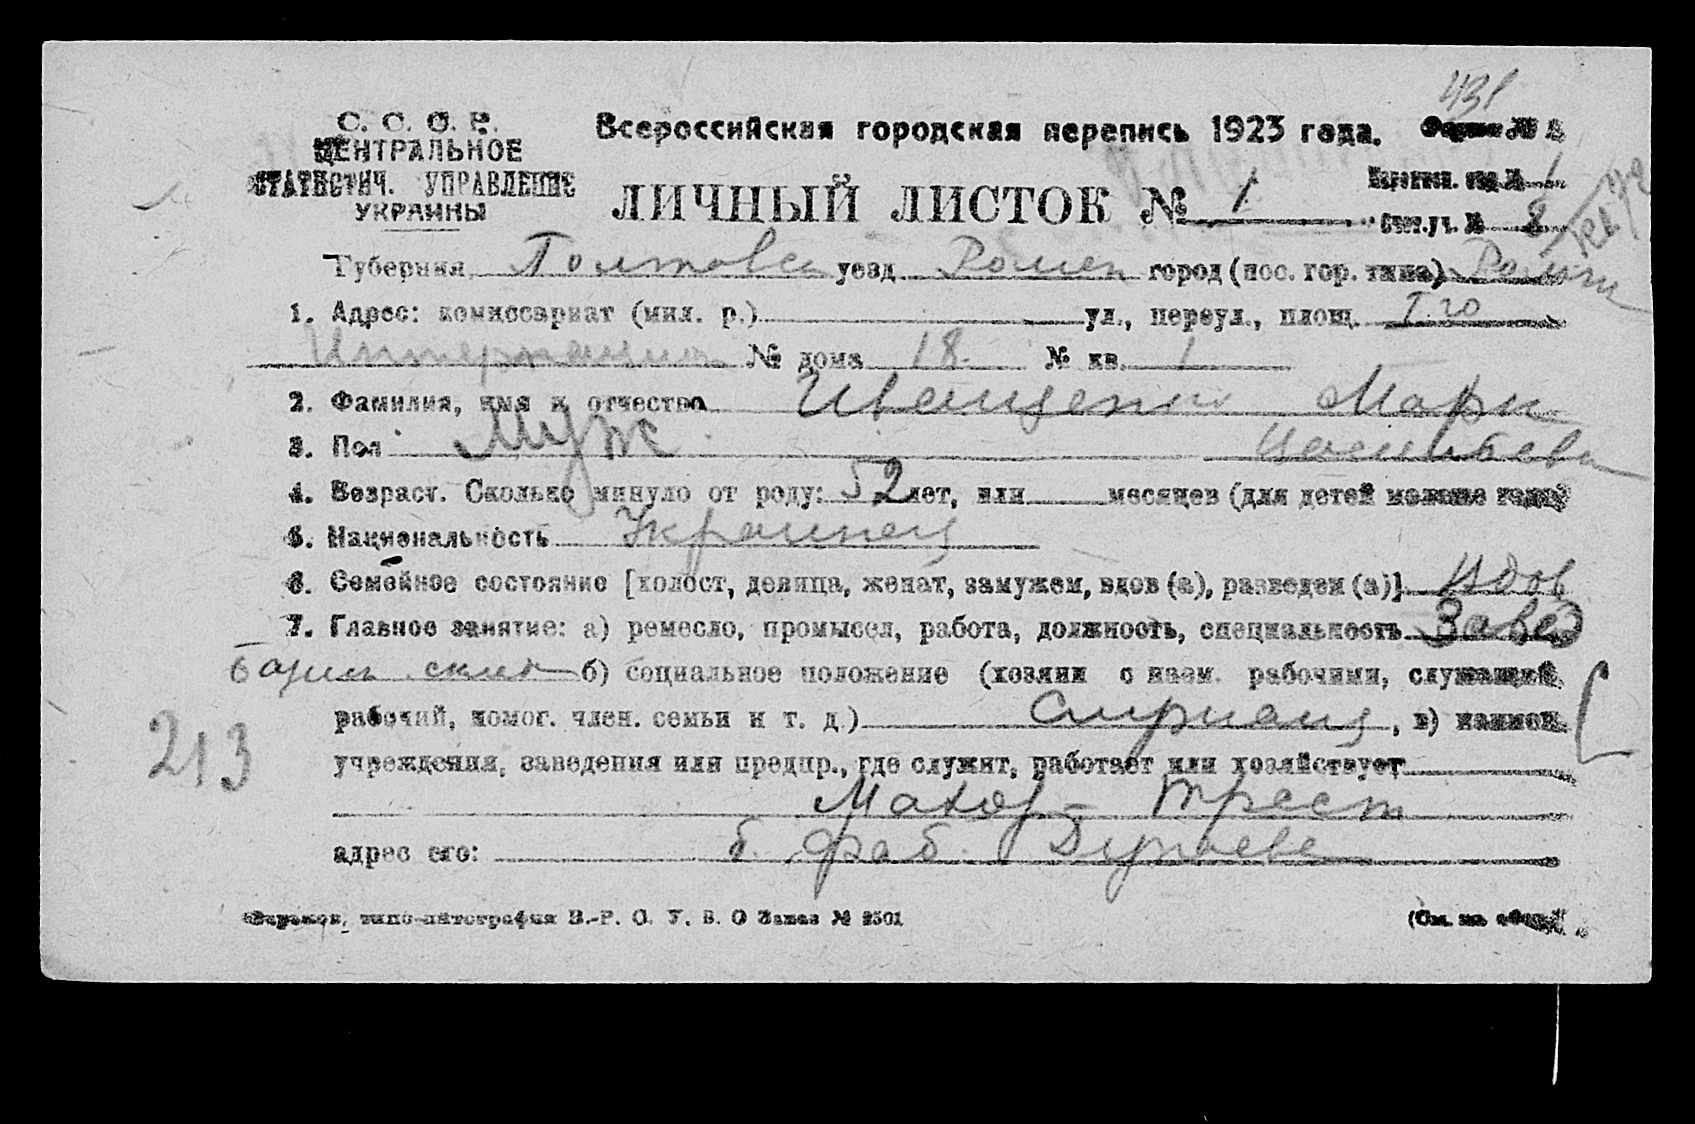 431
С. С. С. Р.
ЦЕНТРАЛЬНОЕ
СТАТИСТИЧ. УПРАВЛЕНИЕ
УКРАИНЫ
Всероссийская городская перепись 1923 года.
ЛИЧНЫЙ ЛИСТОК № 1
Счет. уч. № 8
Губерния Полтавск уезд Ромен город (пос. гор. типа) Ромны
1. Адрес: комиссариат (мил. р.) ул., переул., площ. I го
Интернацион № дома 18 № кв. 1
2. Фамилия, имя и отчество Иващенко Марк
3. Пол Муж
4. Возраст. Сколько минуло от роду: 52 лет, или месяцев (для детей моложе года)
5. Национальность Украинец
6. Семейное состояние [холост, девица, женат, замужем, вдов (а), разведен (а)] Вдов
7. Главное занятие: а) ремесло, промысел, работа, должность, специальность Завед
б) социальное положение (хозяин с наем. рабочими, служащий,
рабочий, помог. член. семьи и т. д.) , в) наимен.
213
учреждения, заведения или предпр., где служит, работает или хозяйствует
Махор-трест
адрес его: б. фаб. Дунаева
Харьков, типо-литография В.-Р. О. У. В. О Заказ № 2501
(См. на обор.)